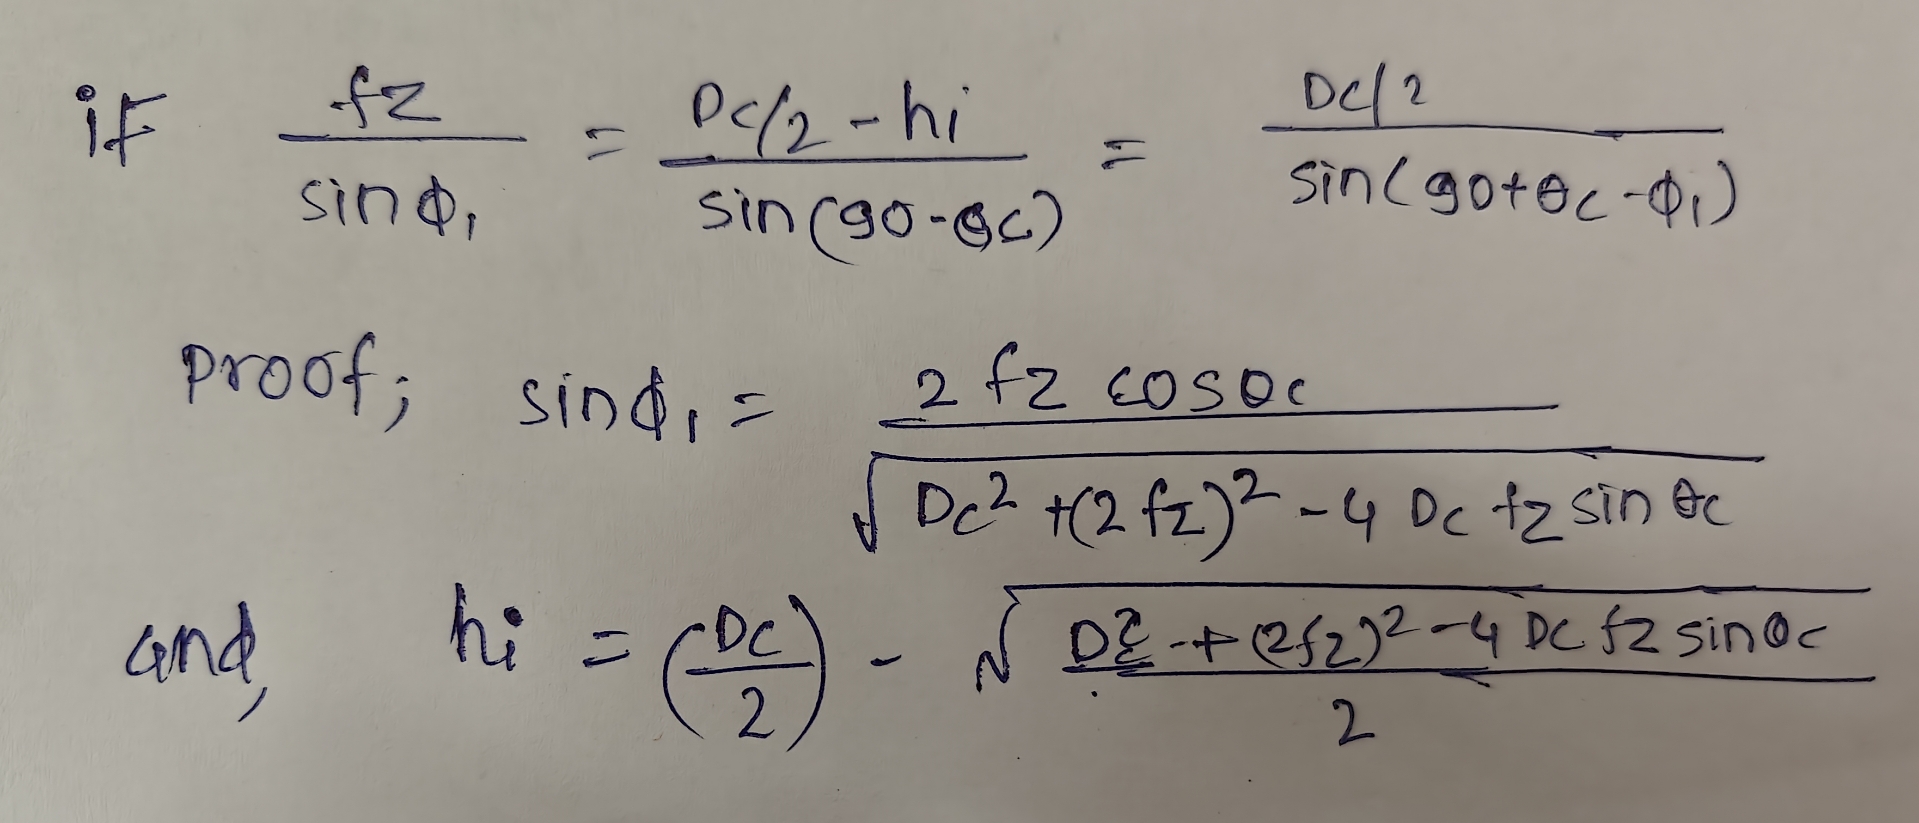 if fz/sinϕ₁ = (Dc/2 - hi)/sin(90-θc) = (Dc/2)/sin(90+θc-ϕ₁)
Proof; sinϕ₁ = 2 fz cosθc / √(Dc² + (2fz)² - 4 Dc fz sin θc)
and, hi = (Dc/2) - √(Dc² + (2fz)² - 4 Dc fz sinθc / 2)